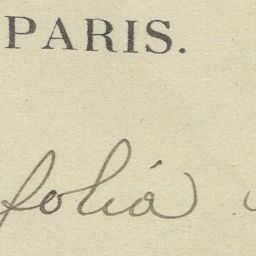 PARIS.
folia